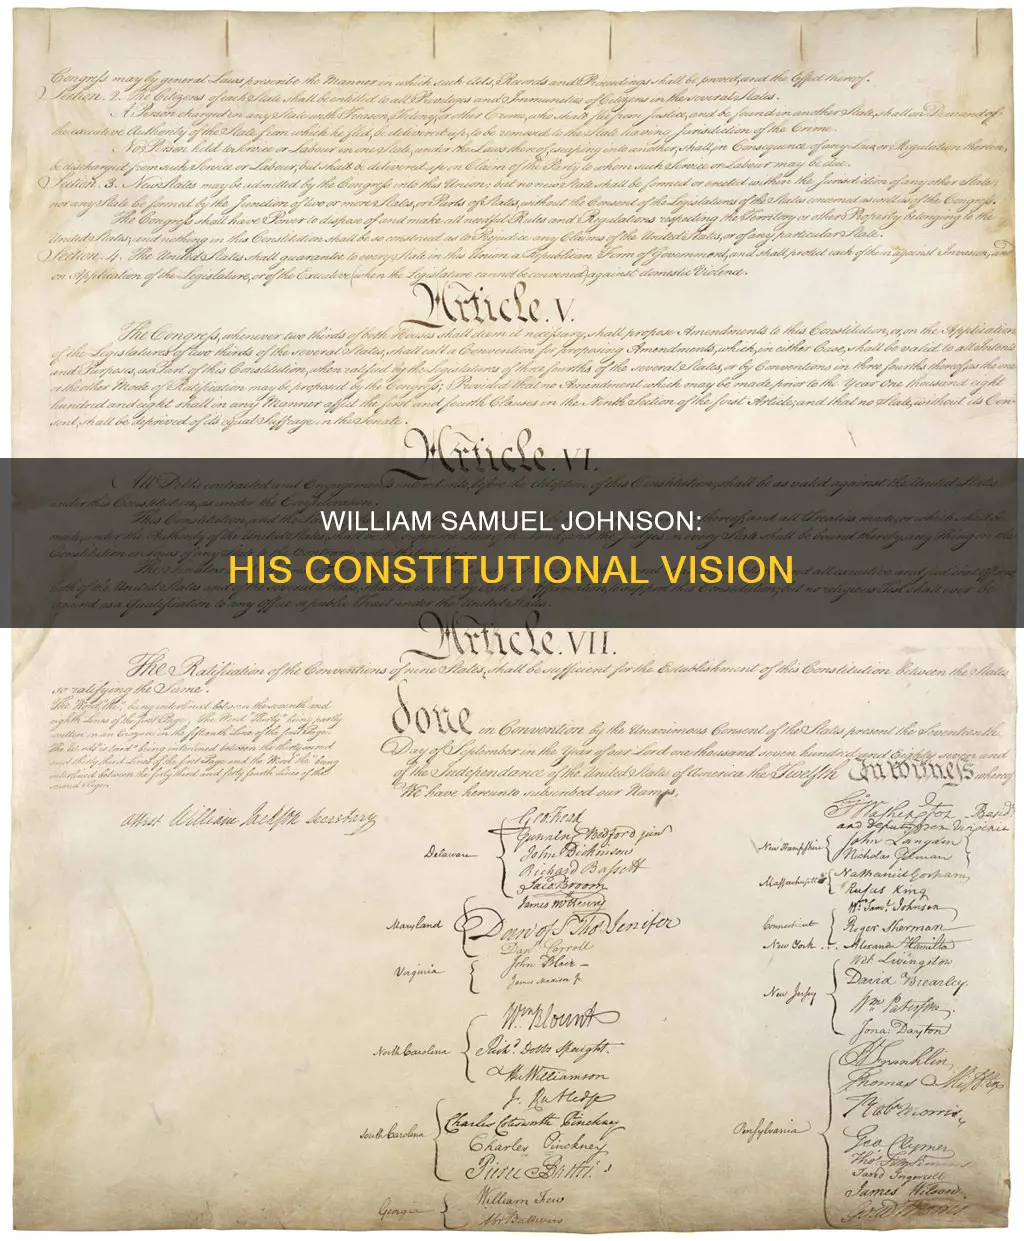 Congress may by general Laws prescribe the Manner in which such Acts, Records and Proceedings shall be proved, and the Effect thereof.
Section. 2. The Citizens of each State shall be entitled to all Privileges and Immunities of Citizens in the several States.
A Person charged in any State with Treason, Felony, or other Crime, who shall flee from Justice, and be found in another State, shall on Demand of
the executive Authority of the State from which he fled, be delivered up, to be removed to the State having Jurisdiction of the Crime.
No Person held to Service or Labour in one State, under the Laws thereof, escaping into another, shall, in Consequence of any Law or Regulation therein,
be discharged from such Service or Labour, but shall be delivered up on Claim of the Party to whom such Service or Labour may be due.
Section. 3. New States may be admitted by the Congress into this Union; but no new State shall be formed or erected within the Jurisdiction of any other State;
nor any State be formed by the Junction of two or more States, or Parts of States, without the Consent of the Legislatures of the States concerned as well as of the Congress.
The Congress shall have Power to dispose of and make all needful Rules and Regulations respecting the Territory or other Property belonging to the
United States; and nothing in this Constitution shall be so construed as to Prejudice any Claims of the United States, or of any particular State.
Section. 4. The United States shall guarantee to every State in this Union a Republican Form of Government, and shall protect each of them against Invasion; and
on Application of the Legislature, or of the Executive (when the Legislature cannot be convened) against domestic Violence.
Article. V.
The Congress, whenever two thirds of both Houses shall deem it necessary, shall propose Amendments to this Constitution, or, on the Application
of the Legislatures of two thirds of the several States, shall call a Convention for proposing Amendments, which, in either Case, shall be valid to all Intents
and Purposes, as Part of this Constitution, when ratified by the Legislatures of three fourths of the several States, or by Conventions in three fourths thereof, as the one
or the other Mode of Ratification may be proposed by the Congress; Provided that no Amendment which may be made prior to the Year One thousand eight
hundred and eight shall in any Manner affect the first and fourth Clauses in the Ninth Section of the first Article; and that no State, without its Con-
sent, shall be deprived of its equal Suffrage in the Senate.
Article. VI.
All Debts contracted and Engagements entered into, before the Adoption of this Constitution, shall be as valid against the United States
under this Constitution, as under the Confederation.
This Constitution, and the
WILLIAM SAMUEL JOHNSON:
HIS CONSTITUTIONAL VISION
bound as a Qualification to any Office or public Trust under the United States.
Article. VII.
The Ratification of the Conventions of nine States, shall be sufficient for the Establishment of this Constitution between the States
so ratifying the Same.
The Word, "the," being interlined between the seventh and
eighth Lines of the first Page, The Word "Thirty" being partly
written on an Erazure in the fifteenth Line of the first Page,
The Words "is tried" being interlined between the thirty second
and thirty third Lines of the first Page and the Word "the" being
interlined between the forty third and forty fourth Lines of the
second Page.
done in Convention by the Unanimous Consent of the States present the Seventeenth
Day of September in the Year of our Lord one thousand seven hundred and Eighty seven and
of the Independance of the United States of America the Twelfth In Witness whereof
We have hereunto subscribed our Names,
attest William Jackson Secretary
Delaware
Geo: Read
Gunning Bedford jun
John Dickinson
Richard Bassett
Jaco: Broom
Maryland
James McHenry
Dan of St Thos Jenifer
Danl Carroll
Virginia
John Blair –
James Madison Jr.
North Carolina
Wm Blount
Richd. Dobbs Spaight.
Hu Williamson
South Carolina
J. Rutledge
Charles Cotesworth Pinckney
Charles Pinckney
Pierce Butler.
Georgia
William Few
Abr Baldwin
Go. Washington Presidt.
and deputy from Virginia
New Hampshire
John Langdon
Nicholas Gilman
Massachusetts
Nathaniel Gorham
Rufus King
Connecticut
Wm. Saml. Johnson
Roger Sherman
New York . . .
Alexander Hamilton
New Jersey
Wil: Livingston
David Brearley.
Wm. Paterson.
Jona: Dayton
Pensylvania
B Franklin
Thomas Mifflin
Robt Morris
Geo. Clymer
Thos. FitzSimons
Jared Ingersoll
James Wilson
Gouv Morris